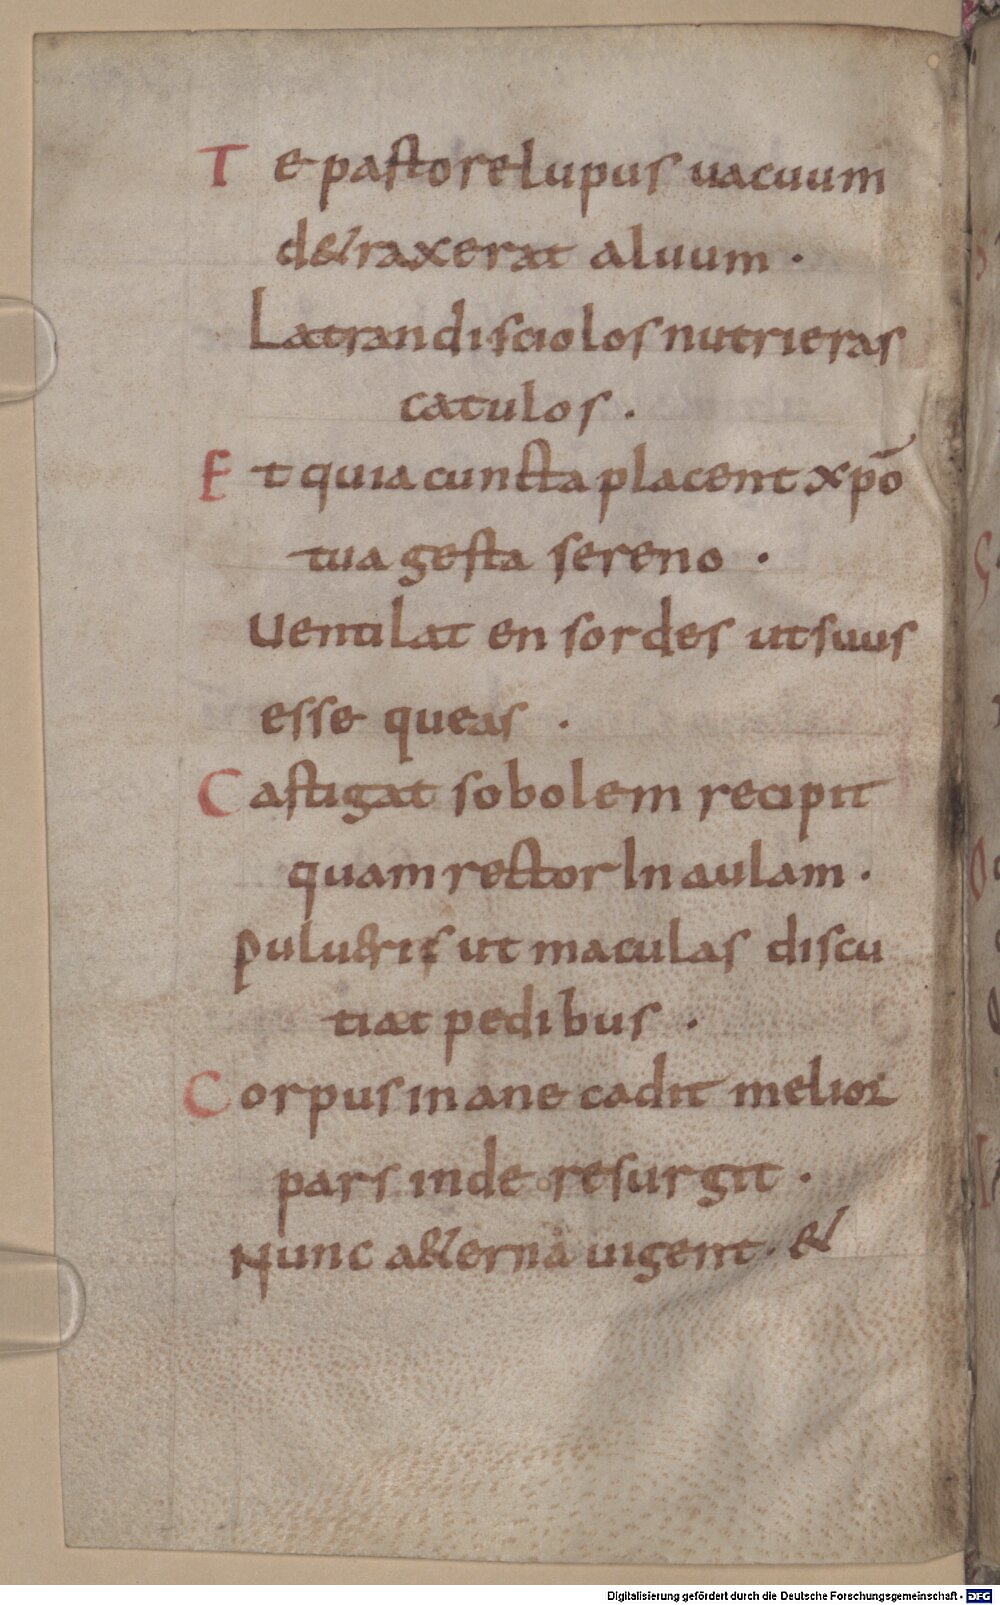 Te pastore lupus uacuum
d&raxerat aluum ·
Latrandi sciolos nutrieras
catulos ·
Et quia cuncta placent xp̄o
tua gesta sereno ·
Uentilat en sordes ut suus
esse queas ·
Castigat sobolem recipit
quam rector In aulam ·
pulueris ut maculas discu
tiat pedibus ·
Corpus inane cadit melior
pars inde resurgit ·
Nunc a&erna uigent · &
Digitalisierung gefördert durch die Deutsche Forschungsgemeinschaft - DFG